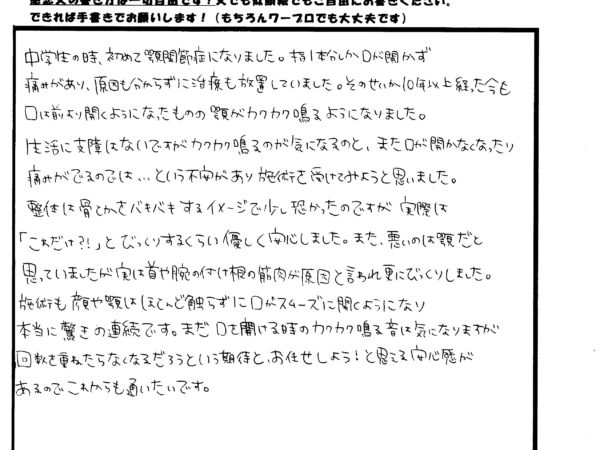 できれば手書きでお願いします！（もちろんワープロでも大丈夫です）
中学性の時、初めて顎関節症になりました。指1本分しか口が開かず
痛みがあり、原因も分からずに治療も放置していました。そのせいか10年以上経った今も
口は前より開くようになったものの顎がカクカク鳴るようになりました。
生活に支障はないですがカクカク鳴るのが気になるのと、また口が開かなくなったり
痛みがでるのでは…という不安があり施術を受けてみようと思いました。
整体は骨とかをバキバキするイメージで少し恐かったのですが実際は
「これだけ?!」とびっくりするくらい優しく安心しました。また、悪いのは顎だと
思っていましたが実は首や腕の付け根の筋肉が原因と言われ更にびっくりしました。
施術も顔や顎はほとんど触らずに口がスムーズに開くようになり
本当に驚きの連続です。まだ口を開ける時のカクカク鳴る音は気になりますが
回数を重ねたらなくなるだろうという期待と、お任せしよう！と思える安心感が
あるのでこれからも通いたいです。